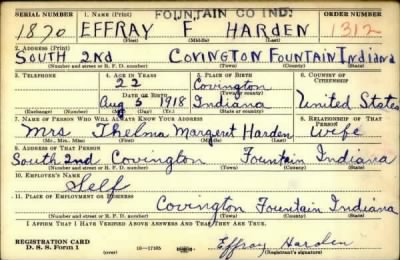 FOUNTAIN CO IND.
SERIAL NUMBER 1. NAME (Print) ORDER NUMBER
1870 EFFRAY F HARDEN 1312
(First) (Middle) (Last)
2. ADDRESS (Print)
SOUTH 2nd COVINGTON FOUNTAIN Indiana
(Number and street or R. F. D. number) (Town) (County) (State)
3. TELEPHONE 4. AGE IN YEARS 5. PLACE OF BIRTH 6. COUNTRY OF CITIZENSHIP
22 Covington
DATE OF BIRTH (Town or county)
Aug 5 1918 Indiana United States
(Exchange) (Number) (Mo.) (Day) (Yr.) (State or country)
7. NAME OF PERSON WHO WILL ALWAYS KNOW YOUR ADDRESS 8. RELATIONSHIP OF THAT PERSON
Mrs Thelma Margent Harden wife
(Mr., Mrs., Miss) (First) (Middle) (Last)
9. ADDRESS OF THAT PERSON
South 2nd Covington Fountain Indiana
(Number and street or R. F. D. number) (Town) (County) (State)
10. EMPLOYER'S NAME
Self
11. PLACE OF EMPLOYMENT OR BUSINESS
Covington Fountain Indiana
(Number and street or R. F. D. number) (Town) (County) (State)
I AFFIRM THAT I HAVE VERIFIED ABOVE ANSWERS AND THAT THEY ARE TRUE.
REGISTRATION CARD
D. S. S. Form 1 (over) 16—17105 Effray Harden
(Registrant's signature)